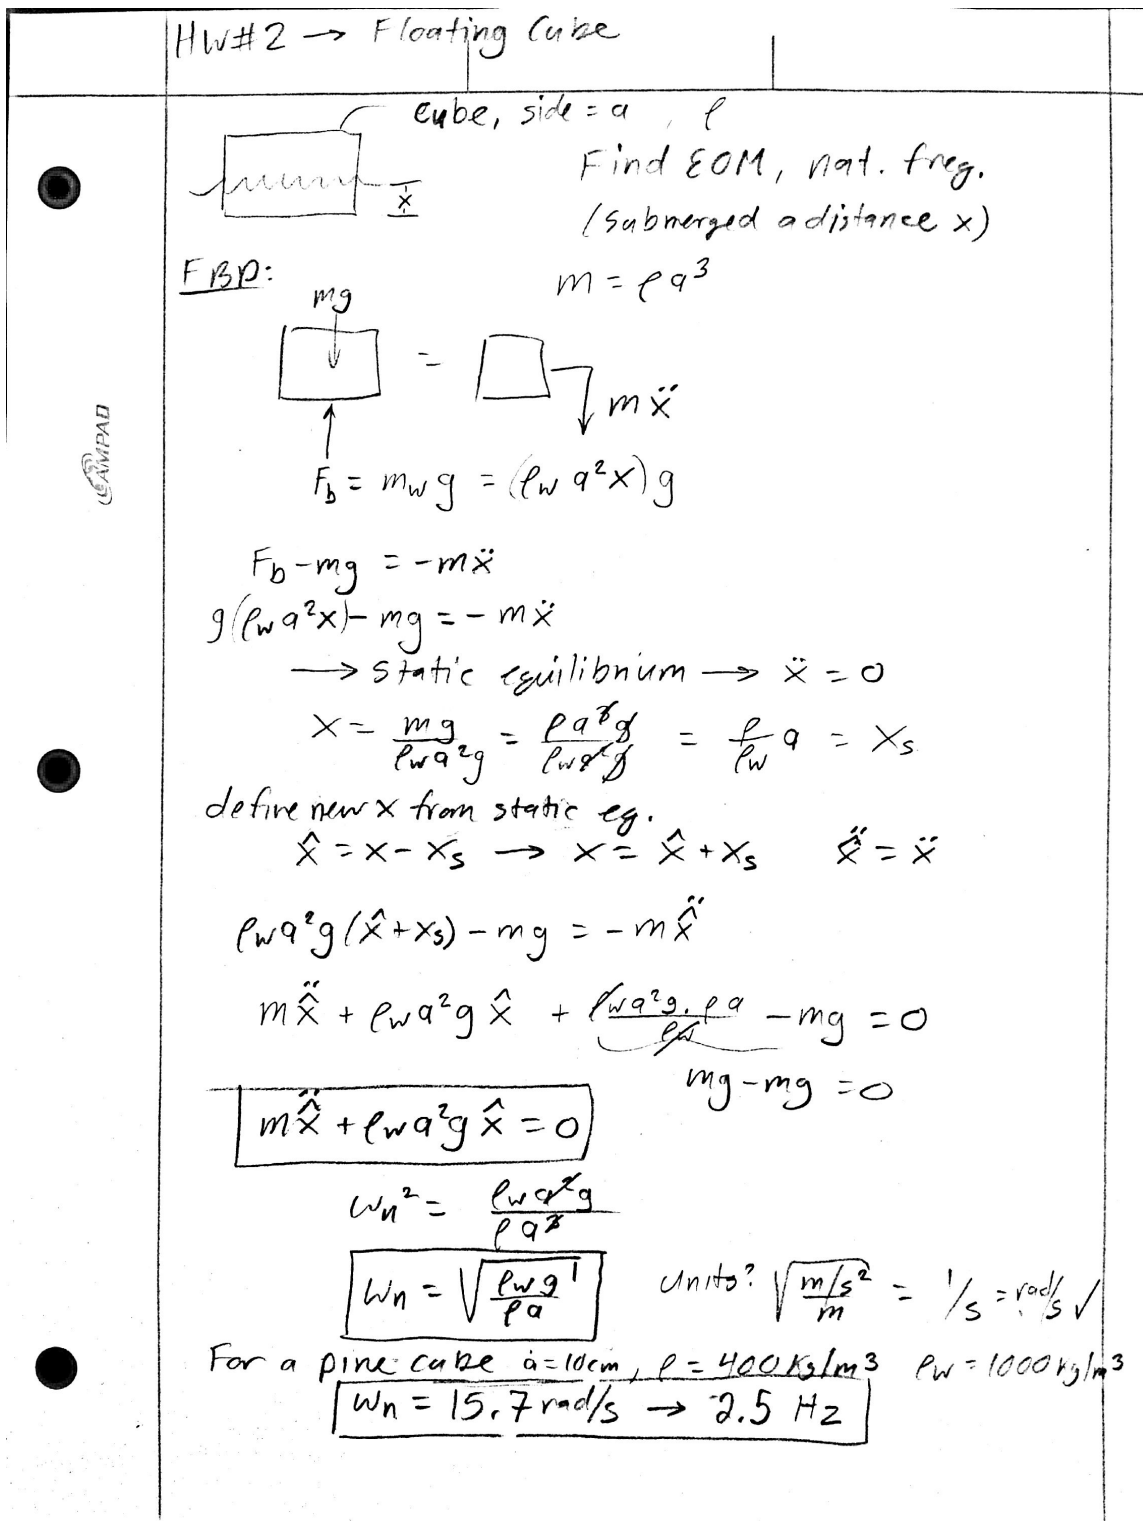 HW#2 → Floating Cube
cube, side = a , ρ
Find EOM, nat. freq.
x
(submerged a distance x)
FBD:
m = ρa³
mg
=
mẍ
F_b = m_w g = (ρ_w a²x)g
F_b - mg = -mẍ
g(ρ_w a²x) - mg = -mẍ
→ static equilibrium → ẍ = 0
x = mg/(ρ_w a²g) = ρa³g/(ρ_w a²g) = ρ/ρ_w a = x_s
define new x from static eq.
x̂ = x - x_s → x = x̂ + x_s   x̂̈ = ẍ
ρ_w a²g(x̂ + x_s) - mg = -m x̂̈
m x̂̈ + ρ_w a²g x̂ + (ρ_w a²g · ρa)/ρ_w - mg = 0
mg - mg = 0
m x̂̈ + ρ_w a²g x̂ = 0
ω_n² = ρ_w a²g/(ρa³)
ω_n = √(ρ_w g/(ρa))   Units? √((m/s²)/m) = 1/s = rad/s ✓
For a pine cube a=10cm, ρ = 400 Kg/m3   ρ_w = 1000 kg/m3
ω_n = 15.7 rad/s → 2.5 Hz
AMPAD